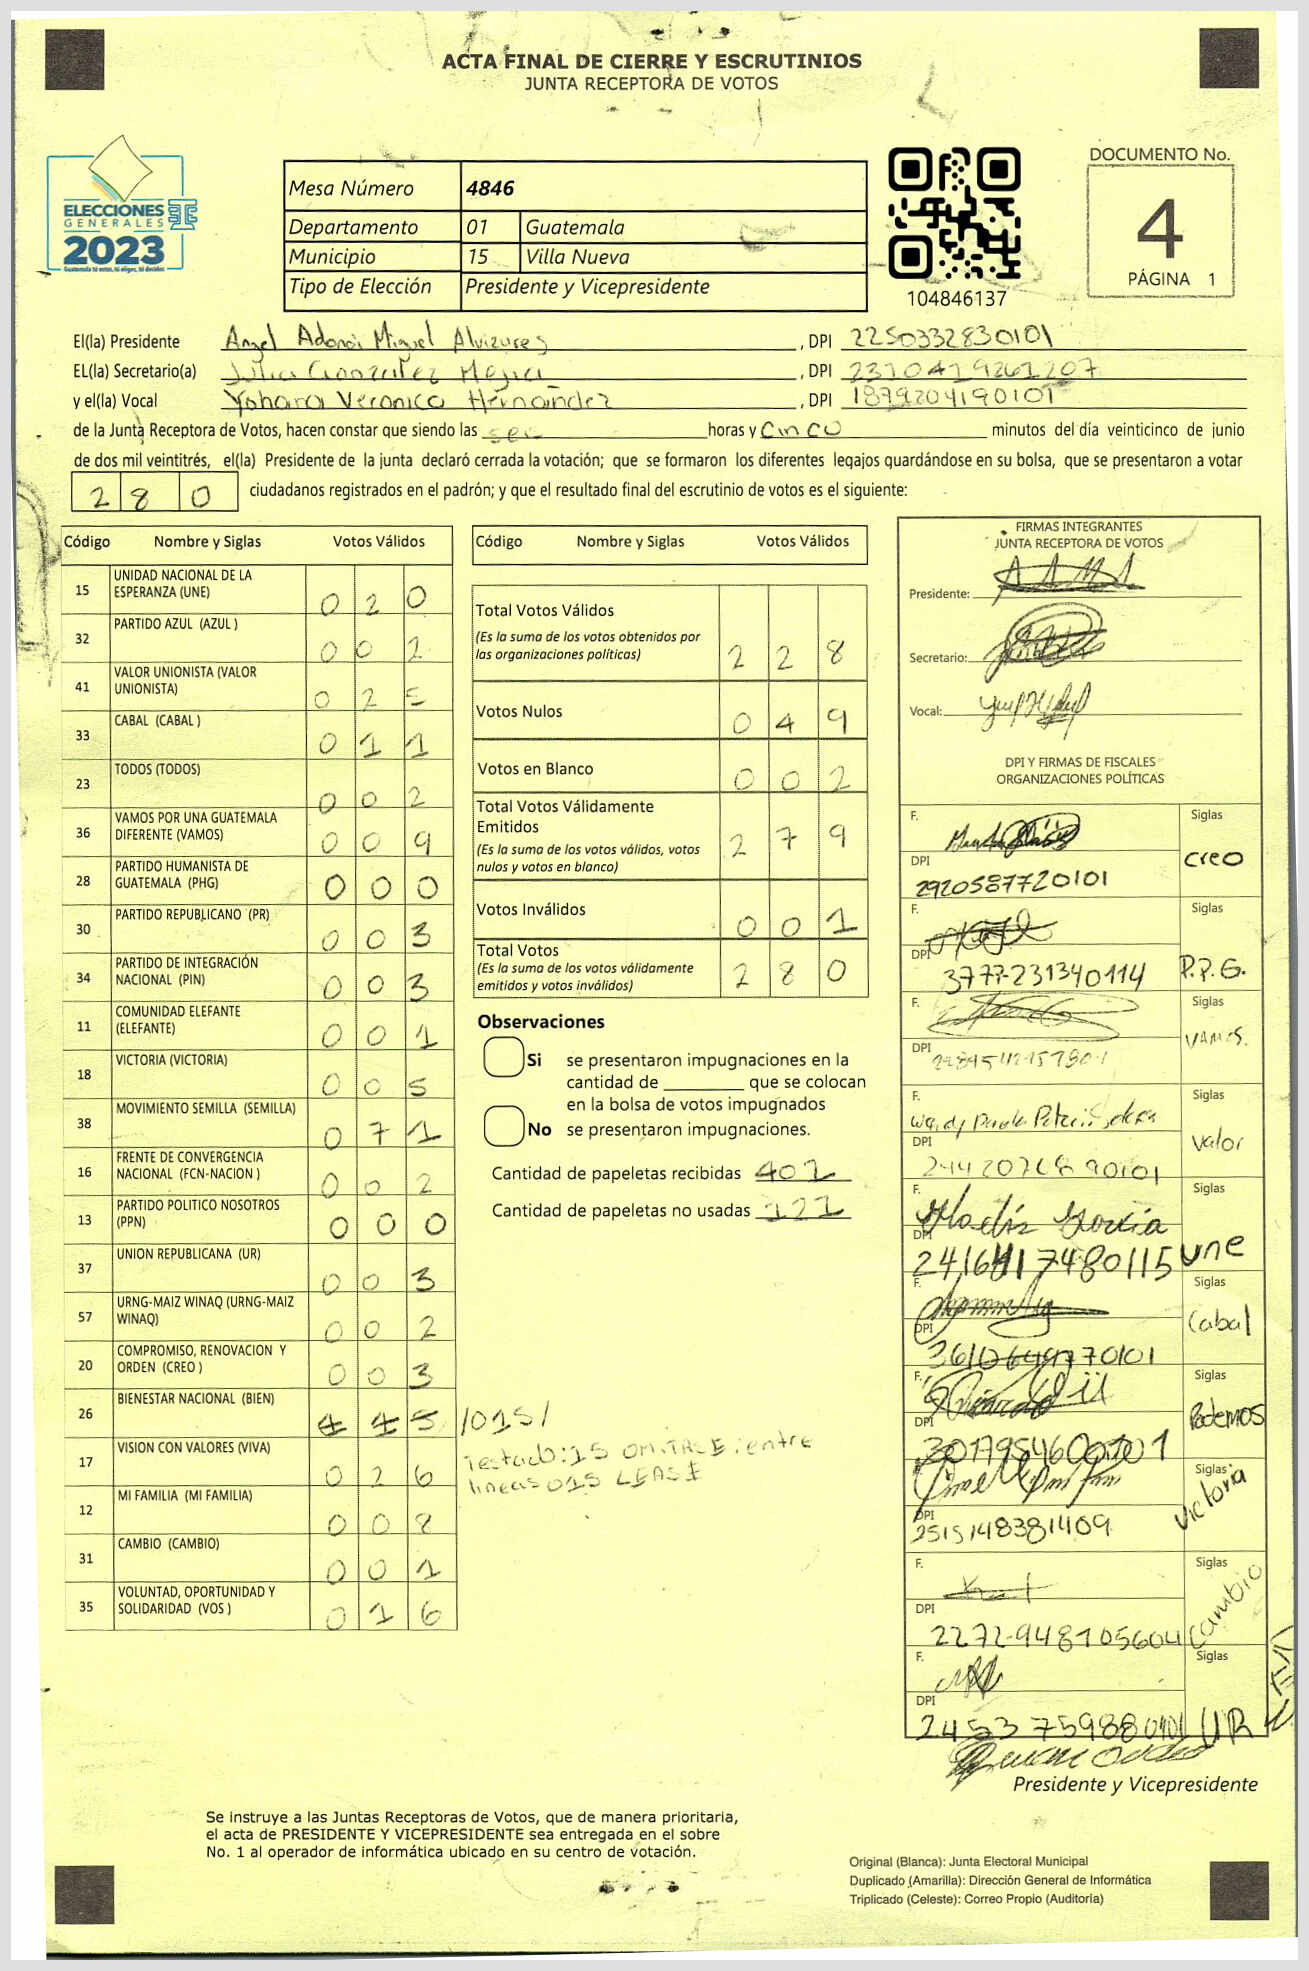 ACTA FINAL DE CIERRE Y ESCRUTINIOS
JUNTA RECEPTORA DE VOTOS
ELECCIONES
GENERALES
2023
Guatemala tú votas, tú eliges, tú decides
Mesa Número 4846
Departamento 01 Guatemala
Municipio 15 Villa Nueva
Tipo de Elección Presidente y Vicepresidente
104846137
DOCUMENTO No.
4
PÁGINA 1
El(la) Presidente Angel Adonai Miguel Alvizures, DPI 2250332830101
EL(la) Secretario(a) Julia Gonzalez Mejia, DPI 2310419261207
y el(la) Vocal Yohara Veronica Hernandez, DPI 1879204190101
de la Junta Receptora de Votos, hacen constar que siendo las horas y cinco minutos del día veinticinco de junio
de dos mil veintitrés, el(la) Presidente de la junta declaró cerrada la votación; que se formaron los diferentes legajos guardándose en su bolsa, que se presentaron a votar
280 ciudadanos registrados en el padrón; y que el resultado final del escrutinio de votos es el siguiente:
Código Nombre y Siglas Votos Válidos
15 UNIDAD NACIONAL DE LA ESPERANZA (UNE) 020
32 PARTIDO AZUL (AZUL ) 002
41 VALOR UNIONISTA (VALOR UNIONISTA) 025
33 CABAL (CABAL ) 011
23 TODOS (TODOS) 002
36 VAMOS POR UNA GUATEMALA DIFERENTE (VAMOS) 009
28 PARTIDO HUMANISTA DE GUATEMALA (PHG) 000
30 PARTIDO REPUBLICANO (PR) 003
34 PARTIDO DE INTEGRACIÓN NACIONAL (PIN) 003
11 COMUNIDAD ELEFANTE (ELEFANTE) 001
18 VICTORIA (VICTORIA) 005
38 MOVIMIENTO SEMILLA (SEMILLA) 071
16 FRENTE DE CONVERGENCIA NACIONAL (FCN-NACION ) 002
13 PARTIDO POLITICO NOSOTROS (PPN) 000
37 UNION REPUBLICANA (UR) 003
57 URNG-MAIZ WINAQ (URNG-MAIZ WINAQ) 002
20 COMPROMISO, RENOVACION Y ORDEN (CREO ) 003
26 BIENESTAR NACIONAL (BIEN) /015/
Testado: 15 OMITASE: entre
lineas 015 LEASE
17 VISION CON VALORES (VIVA) 026
12 MI FAMILIA (MI FAMILIA) 008
31 CAMBIO (CAMBIO) 001
35 VOLUNTAD, OPORTUNIDAD Y SOLIDARIDAD (VOS ) 016
Código Nombre y Siglas Votos Válidos
Total Votos Válidos
(Es la suma de los votos obtenidos por las organizaciones políticas) 228
Votos Nulos 049
Votos en Blanco 002
Total Votos Válidamente Emitidos
(Es la suma de los votos válidos, votos nulos y votos en blanco) 279
Votos Inválidos 001
Total Votos
(Es la suma de los votos válidamente emitidos y votos inválidos) 280
Observaciones
Si se presentaron impugnaciones en la
cantidad de ________ que se colocan
en la bolsa de votos impugnados
No se presentaron impugnaciones.
Cantidad de papeletas recibidas 401
Cantidad de papeletas no usadas 121
FIRMAS INTEGRANTES
JUNTA RECEPTORA DE VOTOS
Presidente:
Secretario:
Vocal:
DPI Y FIRMAS DE FISCALES
ORGANIZACIONES POLÍTICAS
F. Siglas
DPI creo
2920587720101
F. Siglas
DPI P.P.G.
3777-231340114
F. Siglas
DPI VAMOS.
F. Siglas
DPI Valor
F. Gladis Garcia Siglas
DPI une
F. Siglas
DPI Cabal
F. Siglas
DPI Podemos
F. Siglas
DPI Victoria
2515148381409
F. Siglas
DPI Cambio
2272-948105604
F. Siglas
DPI UR
2453759880101
Presidente y Vicepresidente
Se instruye a las Juntas Receptoras de Votos, que de manera prioritaria,
el acta de PRESIDENTE Y VICEPRESIDENTE sea entregada en el sobre
No. 1 al operador de informática ubicado en su centro de votación.
Original (Blanca): Junta Electoral Municipal
Duplicado (Amarilla): Dirección General de Informática
Triplicado (Celeste): Correo Propio (Auditoría)